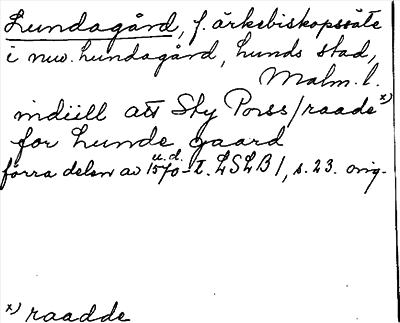 Lundagård, f. ärkebiskopssäte
i nuv. Lundagård, Lunds stad,
Malm. l.
indtill att Sty Porss/raade x)
for Lunde gaard
förra delen av u.d. 1570-t. LSLB 1, s. 23. orig.
x) raadde